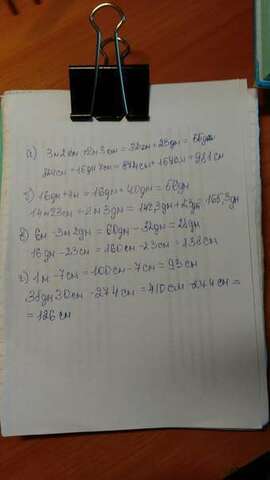 а) 3м2см + 2м3см = 32дм + 23дм = 55дм
824см + 16дм7см = 824см + 167см = 981см
б) 16дм + 4м = 16дм + 40дм = 60дм
14м23см + 2м3дм = 1423дм + 23дм 165,3дм
в) 6м - 3м2дм = 60дм - 32дм = 28дм
16дм - 23см = 160см - 23см = 138см
1м - 7см = 100см - 7см = 93см
38дм30см - 274см = 410см =
= 126см